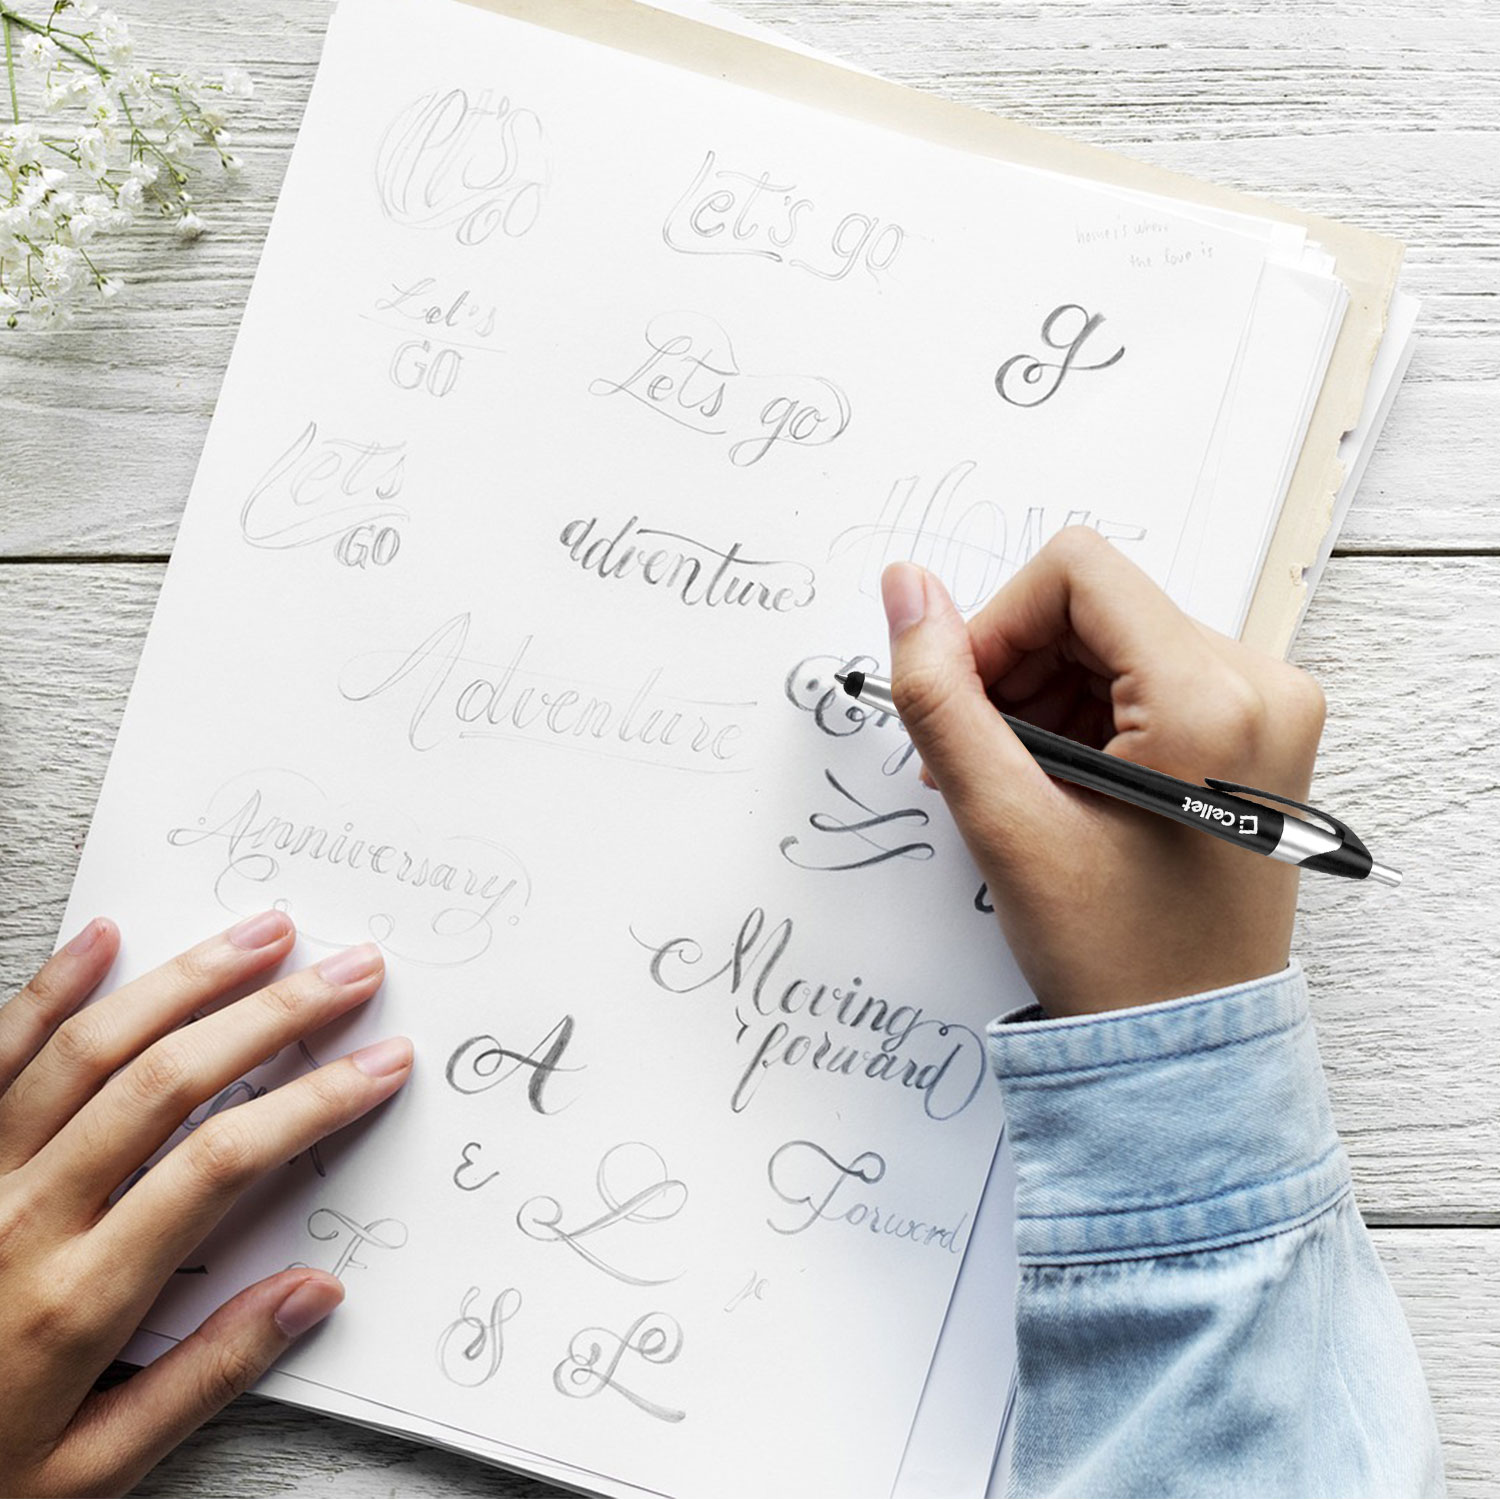 Let's
go
Let's go
home is where
the love is
Let's
GO
Let's go
g
Let's
GO
adventure
HOME
Adventure
Cellet
Anniversary
Moving
forward
A
E
L
Forword
F
S
L